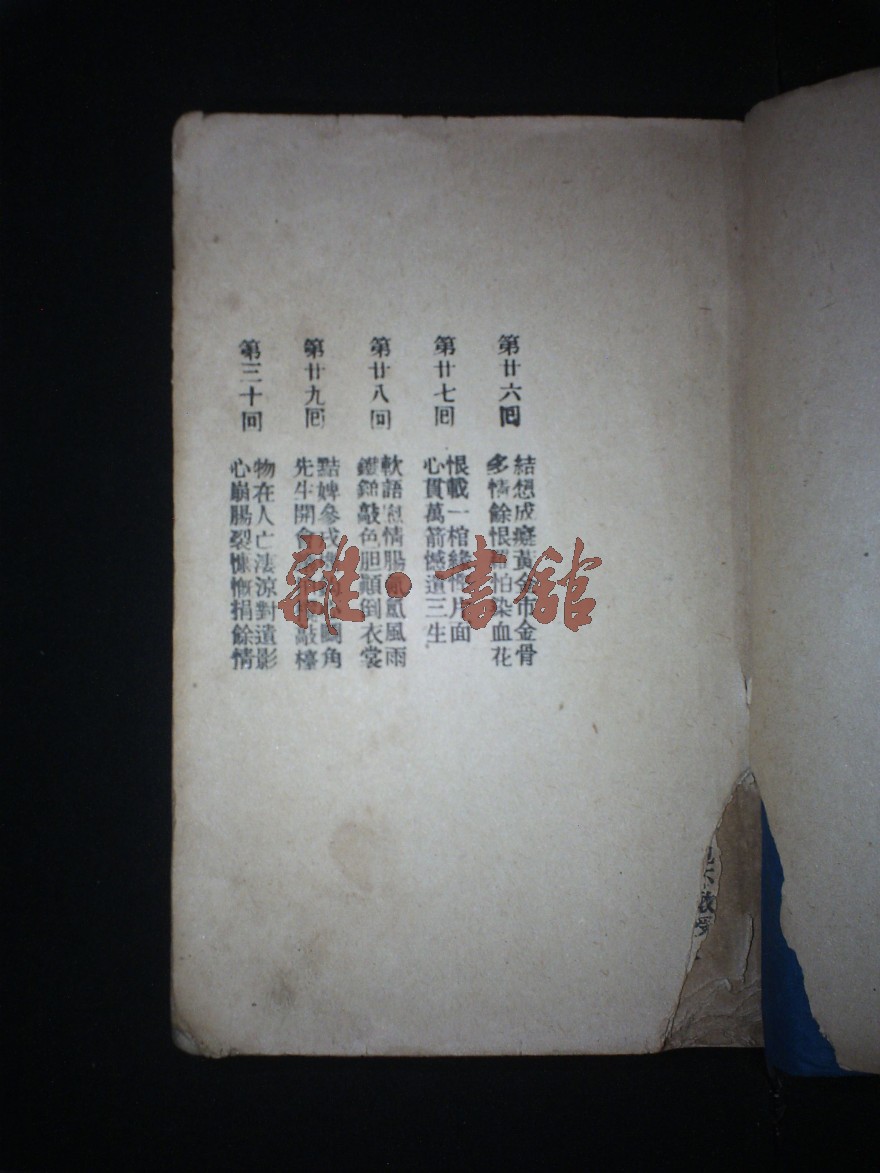 第廿六囘
結想成癡黃金市金骨
多情餘恨怕染血花
第廿七囘
恨載一棺緣慳片面
心貫萬箭憾遺三生
第廿八回
軟語情腸風雨
敲色胆顛倒衣裳
第廿九囘
黠婢參角
先生開會敲檯
第三十回
物在人亡淒涼對遺影
心崩腸裂慷慨捐餘情
雜·書館